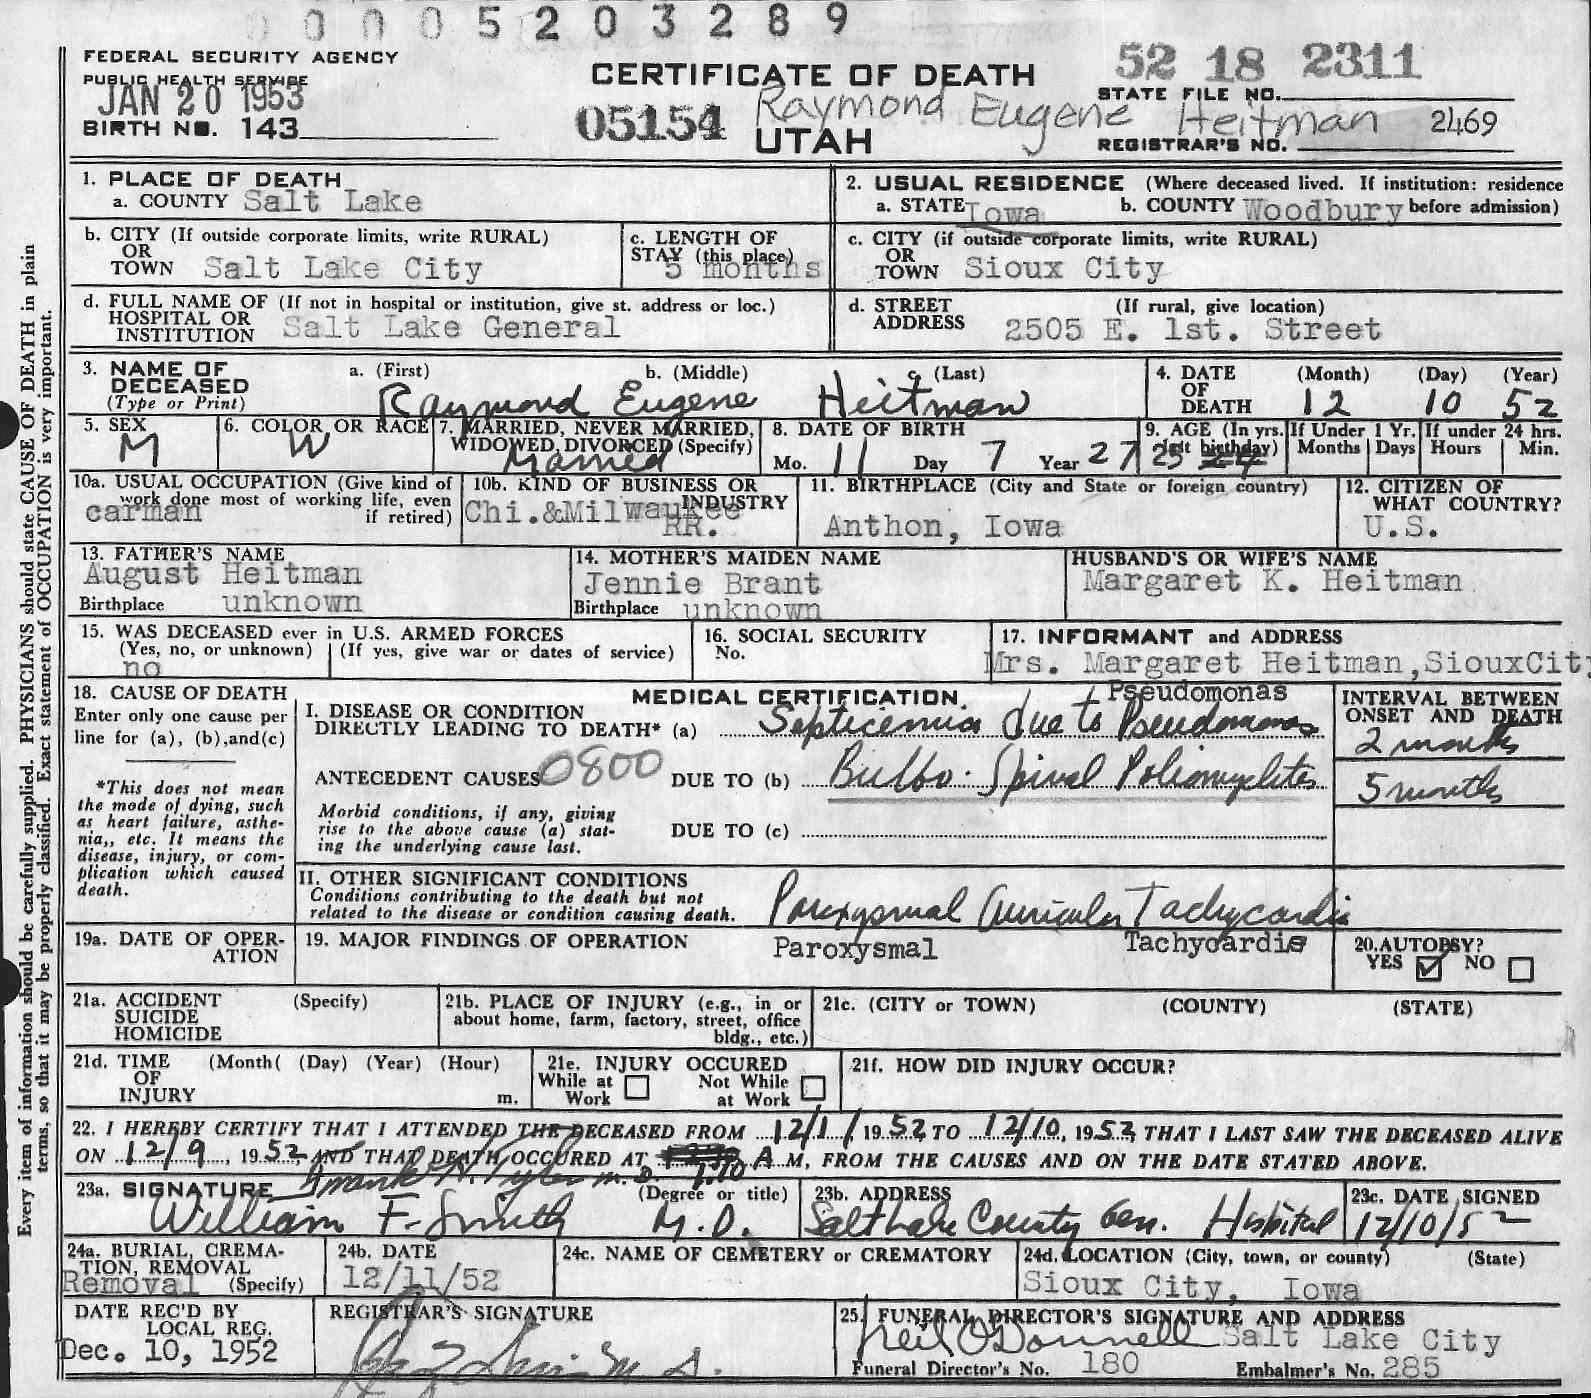 0 0 0 0 5 2 0 3 2 8 9
FEDERAL SECURITY AGENCY
PUBLIC HEALTH SERVICE
JAN 20 1953
BIRTH NO. 143
CERTIFICATE OF DEATH
05154 UTAH
Raymond Eugene Heitman
52 18 2311
STATE FILE NO.
2469
REGISTRAR'S NO.
Every item of information should be carefully supplied. PHYSICIANS should state CAUSE OF DEATH in plain
terms, so that it may be properly classified. Exact statement of OCCUPATION is very important.
1. PLACE OF DEATH
a. COUNTY Salt Lake
2. USUAL RESIDENCE (Where deceased lived. If institution: residence
a. STATE Iowa b. COUNTY Woodbury before admission)
b. CITY (If outside corporate limits, write RURAL)
OR
TOWN Salt Lake City
c. LENGTH OF
STAY (this place)
5 months
c. CITY (if outside corporate limits, write RURAL)
OR
TOWN Sioux City
d. FULL NAME OF (If not in hospital or institution, give st. address or loc.)
HOSPITAL OR
INSTITUTION Salt Lake General
d. STREET (If rural, give location)
ADDRESS 2505 E. 1st. Street
3. NAME OF a. (First) b. (Middle) c. (Last)
DECEASED
(Type or Print) Raymond Eugene Heitman
4. DATE (Month) (Day) (Year)
OF
DEATH 12 10 52
5. SEX
M
6. COLOR OR RACE
W
7. MARRIED, NEVER MARRIED,
WIDOWED, DIVORCED (Specify)
Married
8. DATE OF BIRTH
Mo. 11 Day 7 Year 27
9. AGE (In yrs.
last birthday)
25 24
If Under 1 Yr.
Months Days
If under 24 hrs.
Hours Min.
10a. USUAL OCCUPATION (Give kind of
work done most of working life, even
carman if retired)
10b. KIND OF BUSINESS OR
INDUSTRY
Chi.&Milwaukee
RR.
11. BIRTHPLACE (City and State or foreign country)
Anthon, Iowa
12. CITIZEN OF
WHAT COUNTRY?
U.S.
13. FATHER'S NAME
August Heitman
Birthplace unknown
14. MOTHER'S MAIDEN NAME
Jennie Brant
Birthplace unknown
HUSBAND'S OR WIFE'S NAME
Margaret K. Heitman
15. WAS DECEASED ever in U.S. ARMED FORCES
(Yes, no, or unknown) (If yes, give war or dates of service)
no
16. SOCIAL SECURITY
No.
17. INFORMANT and ADDRESS
Mrs. Margaret Heitman,SiouxCity
18. CAUSE OF DEATH
Enter only one cause per
line for (a), (b),and(c)
*This does not mean
the mode of dying, such
as heart failure, asthe-
nia,, etc. It means the
disease, injury, or com-
plication which caused
death.
MEDICAL CERTIFICATION.
Pseudomonas
I. DISEASE OR CONDITION
DIRECTLY LEADING TO DEATH* (a) Septicemia due to Pseudomonas
ANTECEDENT CAUSES 0800 DUE TO (b) Bulbo-Spinal Poliomyelites
Morbid conditions, if any, giving
rise to the above cause (a) stat-
ing the underlying cause last.
DUE TO (c)
INTERVAL BETWEEN
ONSET AND DEATH
2 months
5 months
II. OTHER SIGNIFICANT CONDITIONS
Conditions contributing to the death but not
related to the disease or condition causing death.
Paroxysmal Auricular Tachycardia
19a. DATE OF OPER-
ATION
19. MAJOR FINDINGS OF OPERATION
Paroxysmal Tachycardis
20.AUTOPSY?
YES ☑ NO ☐
21a. ACCIDENT (Specify)
SUICIDE
HOMICIDE
21b. PLACE OF INJURY (e.g., in or
about home, farm, factory, street, office
bldg., etc.)
21c. (CITY or TOWN) (COUNTY) (STATE)
21d. TIME (Month( (Day) (Year) (Hour)
OF
INJURY m.
21e. INJURY OCCURED
While at Work ☐ Not While at Work ☐
21f. HOW DID INJURY OCCUR?
22. I HEREBY CERTIFY THAT I ATTENDED THE DECEASED FROM 12/1/ 1952 TO 12/10, 1952, THAT I LAST SAW THE DECEASED ALIVE
ON 12/9, 1952, AND THAT DEATH OCCURED AT 1:10 A M, FROM THE CAUSES AND ON THE DATE STATED ABOVE.
Frank H. Tyler M.D.
23a. SIGNATURE (Degree or title)
William F. Smith M.D.
23b. ADDRESS
Salt Lake County Gen. Hospital
23c. DATE SIGNED
12/10/52
24a. BURIAL, CREMA-
TION, REMOVAL
Removal (Specify)
24b. DATE
12/11/52
24c. NAME OF CEMETERY or CREMATORY
24d. LOCATION (City, town, or county) (State)
Sioux City, Iowa
DATE REC'D BY
LOCAL REG.
Dec. 10, 1952
REGISTRAR'S SIGNATURE
M.D.
25. FUNERAL DIRECTOR'S SIGNATURE AND ADDRESS
Neil O'Donnell Salt Lake City
Funeral Director's No. 180 Embalmer's No. 285